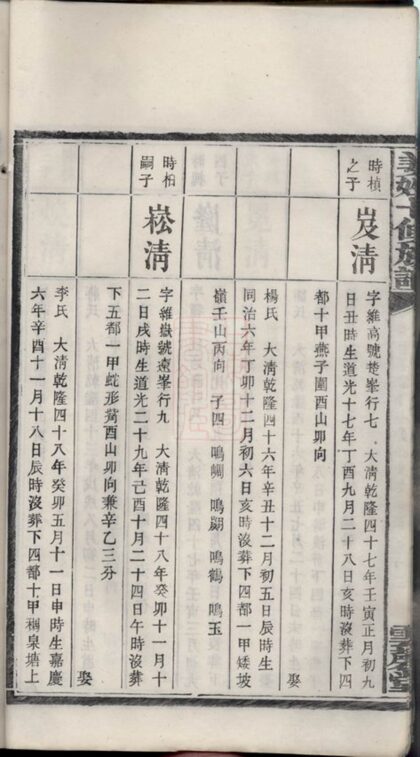 時楨
之子
岌清
字維高號楚峯行七 大清乾隆四十七年壬寅正月初九
日丑時生道光十七年丁酉九月二十八日亥時沒葬下四
都十甲燕子園酉山卯向 娶
楊氏 大清乾隆四十六年辛丑十二月初五日辰時生
同治六年丁卯十二月初六日亥時沒葬下四都一甲矮坡
嶺壬山丙向 子四 鳴 鳴 鳴鶴 鳴玉
時柏
嗣子
崧清
字維嶽號遠峯行九 大清乾隆四十八年癸卯十一月十
二日戌時生道光二十九年己酉十月二十四日午時沒葬
下五都一甲蛇形酉山卯向兼辛乙三分 娶
李氏 大清乾隆四十八年癸卯五月十一日申時生嘉慶
六年辛酉十一月十八日辰時沒葬下四都十甲楓泉塘上